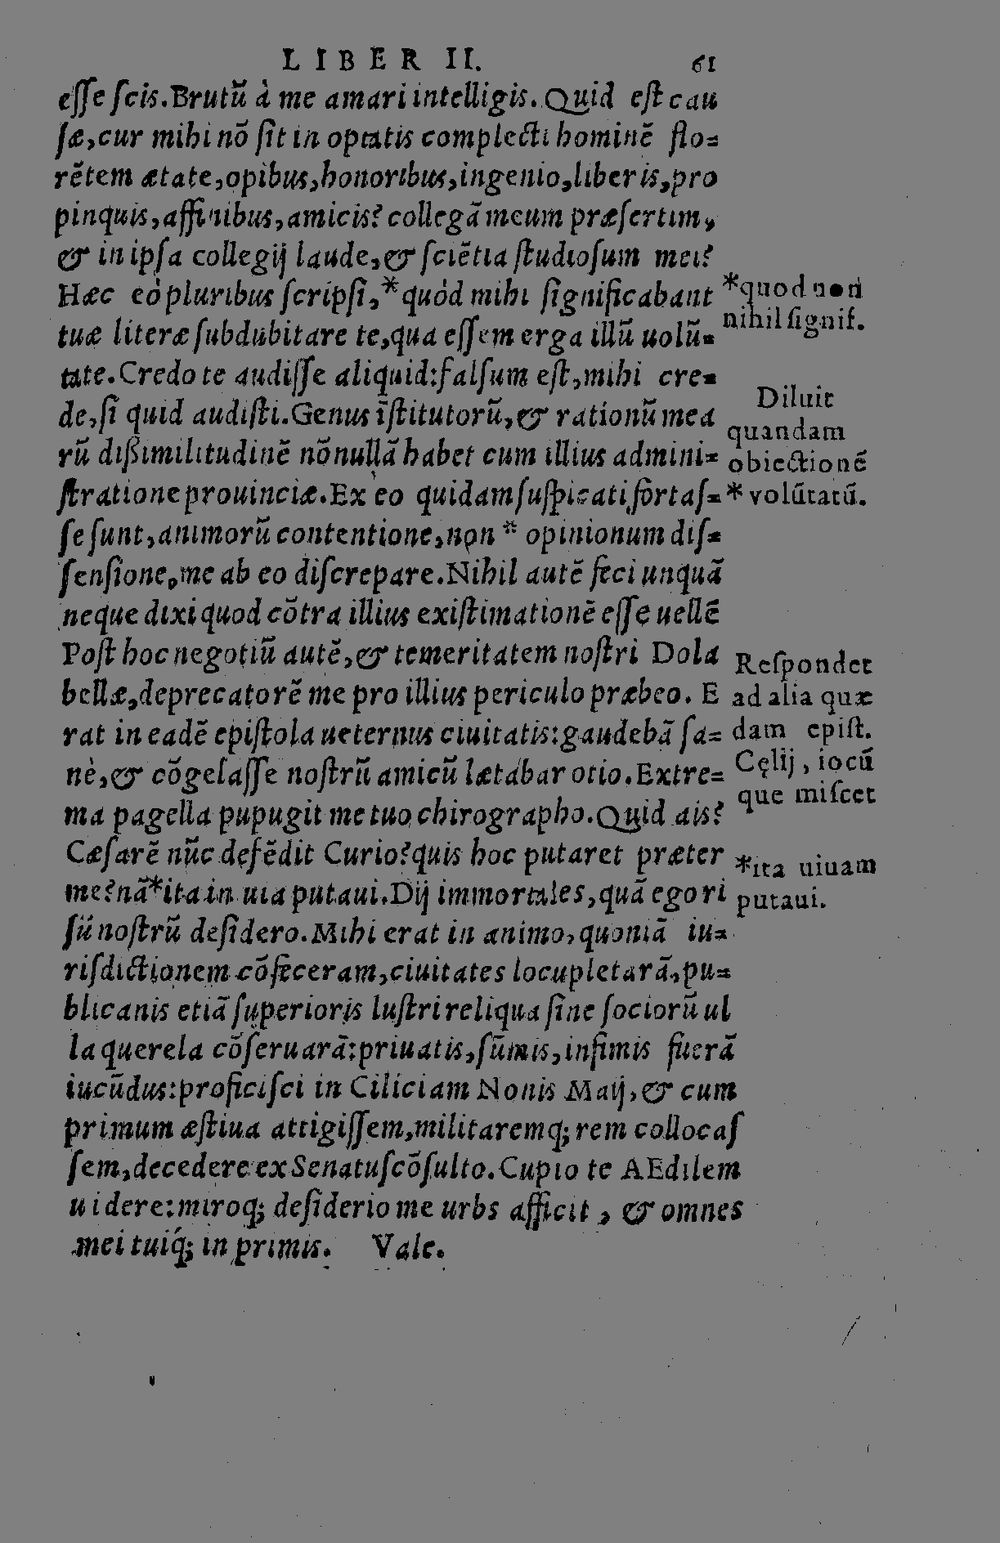 LIBER II. 61
esse scis. Brutũ à me amari intelligis. Quid est cau
sæ, cur mihi nõ sit in optatis complecti hominẽ flo=
rẽtem ætate, opibus, honoribus, ingenio, liberis, pro
pinquis, affinibus, amicis? collegã meum præsertim,
& in ipsa collegij laude, & sciẽtia studiosum mei?
Hæc eò pluribus scripsi, *quòd mihi significabant
tuæ literæ subdubitare te, qua essem erga illũ uolũ=
tate. Credo te audisse aliquid: falsum est, mihi cre=
de, si quid audisti. Genus ĩstitutorũ, & rationũ mea
rũ dißimilitudinẽ nõnullã habet cum illius admini=
stratione prouinciæ. Ex eo quidam suspicati fortas=
se sunt, animorũ contentione, non * opinionum dis=
sensione, me ab eo discrepare. Nihil autẽ feci unquã
neque dixi quod cõtra illius existimationẽ esse uellẽ
Post hoc negotiũ autẽ, & temeritatem nostri Dola
bellæ, deprecatorẽ me pro illius periculo præbeo. E
rat in eadẽ epistola ueternus ciuitatis: gaudebã sa=
nè, & cõgelasse nostrũ amicũ lætabar otio. Extre=
ma pagella pupugit me tuo chirographo. Quid ais?
Cæsarẽ nũc defẽdit Curio? quis hoc putaret præter
me? nã *ita in uia putaui. Dij immortales, quã ego ri
sũ nostrũ desidero. Mihi erat in animo, quoniã iu=
risdictionem cõfeceram, ciuitates locupletarã, pu=
blicanis etiã superioris lustri reliqua sine sociorũ ul
la querela cõseruarã: priuatis, sũmis, infimis fuerã
iucũdus: proficisci in Ciliciam Nonis Maij, & cum
primum æstiua attigissem, militaremq; rem collocas
sem, decedere ex Senatuscõsulto. Cupio te AEdilem
uidere: miroq; desiderio me urbs afficit, & omnes
mei tuiq́; in primis. Vale.
*quod non
nihil signif.
Diluit
quandam
obiectionẽ
* volũtatũ.
Respondet
ad alia quæ
dam epist.
Cęlij, iocũ
que miscet
*ita uiuam
putaui.